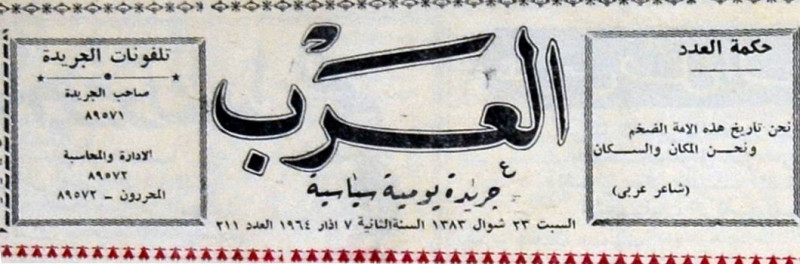 حكمة العدد
نحن تاريخ هذه الامة الضخم
ونحن المكان والسكان
(شاعر عربي)
العرب
جريدة يومية سياسية
السبت ٢٣ شوال ١٣٨٣ السنة الثانية ٧ اذار ١٩٦٤ العدد ٢١١
تلفونات الجريدة
صاحب الجريدة
٨٩٥٧١
الادارة والمحاسبة
٨٩٥٧٢
المحررون - ٨٩٥٧٣